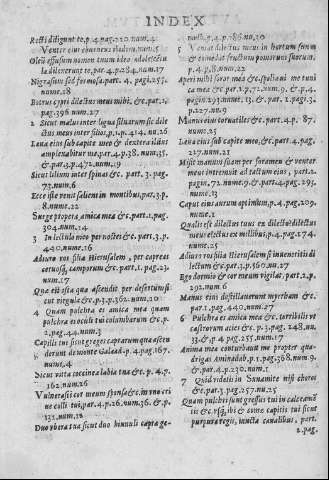 INDEX
Recti diligunt te, p.4. pag.220. num.4.
Venter eius eburneus
Oleũ effusum nomen tuum ideo adolescẽtu
la dilexerunt te, par.4. p.284. num.17
Nigra sed formosa. part. 4. pag. 253.
nume.28
Botrus cypri dilectus meus mihi, &c. par.1.
pag.396 num.27
2 Sicut malus inter ligna siluarum sic dile
ctus meus inter filios, p.1. p.414. nu.26
Læua eius sub capite meo & dextera illius
amplexabitur me, par.4. p.38. num.35.
& par.4. p.472. num.19
Sicut lilium inter spinas &c. part. 3. pag.
73. num.6
Ecce iste venit saliens in montibus, par.3. p.
8. nume.22
Surge propera amica mea &c. part.1. pag.
304. num.14
3 In lectulo meo per noctes &c. part.3. p.
440. nume.16
Adiuro vos filiæ Hierusalem, per capreas
ceruosq́, camporum &c. part.1. pag.23.
num.17
Quæ est ista quæ ascendit per desertum si
cut virgula &c. p.3. p.362. num.10
4 Quam pulchra es amica mea quam
pulchra es oculi tui columbarum &c. p.
2. pag.44. num.3
Capilli tui sicut greges caprarum quæ ascen
derunt de monte Galaad. p.4. pag.167.
nume.4
Sicut vitta coccinea labia tua &c. p. 4. p.
162. num.26
Vulnerasti cor meum sponsa &c. in vno cri
ne colli tui, par.4. p.26. num.36. & p.
132. num.18
Duo vbera tua sicut duo hinnuli capræ ge-
5 Veniat dilectus meus in hortum suum
& comedat fructum pomorum suorum.
p.4. p.8. num.22
Aperi mihi soror mea &c. spoliaui me tuni
ca mea &c. par.1. p.72. num.9. & p.4.
pagin.293. nume. 13. & par. 2. pagi.3.
p.127. nu.9
Manus eius tornatiles &c. part.4. p. 87.
nume.25
Læua eius sub capite meo, &c. part.4. pag.
227. num.21
Misit manum suam per foramen & venter
meus intremuit ad tactum eius, part.2.
pagin.72. nume.9. & part.4. pag.293.
nume.13
Caput eius aurum optimum, p.4. pag.209.
nume.1
Qualis est dilectus tuus ex dilecto? dilectus
meus electus ex millibus, p.4. pag.274.
nume.25
Adiuro vos filiæ Hierusalem si inueneritis di
lectum &c. par.3. p.360. nu.27
Ego dormio & cor meum vigilat, part.2. p.
292. num.6
Manus eius distillauerunt myrrham &c.
par.1. pag.440. num.27
6 Pulchra es amica mea &c. terribilis vt
castrorum acies &c. p.3. pag.248. nu.
33. & p.4. pag.255. num.17
Anima mea conturbauit me propter qua-
drigas Aminadab, p.1. pag.368. num.9.
& par.4. p.230. num.1
7 Quid vidебis in Sunamite nisi choros
&c. par.3. pag.257. nu.25
Quàm pulchri sunt gressus tui in calceamẽ
tis &c. vsq́; ibi & comæ capitis tui sicut
purpura regis, iuncta canalibus, part.
2. pag.